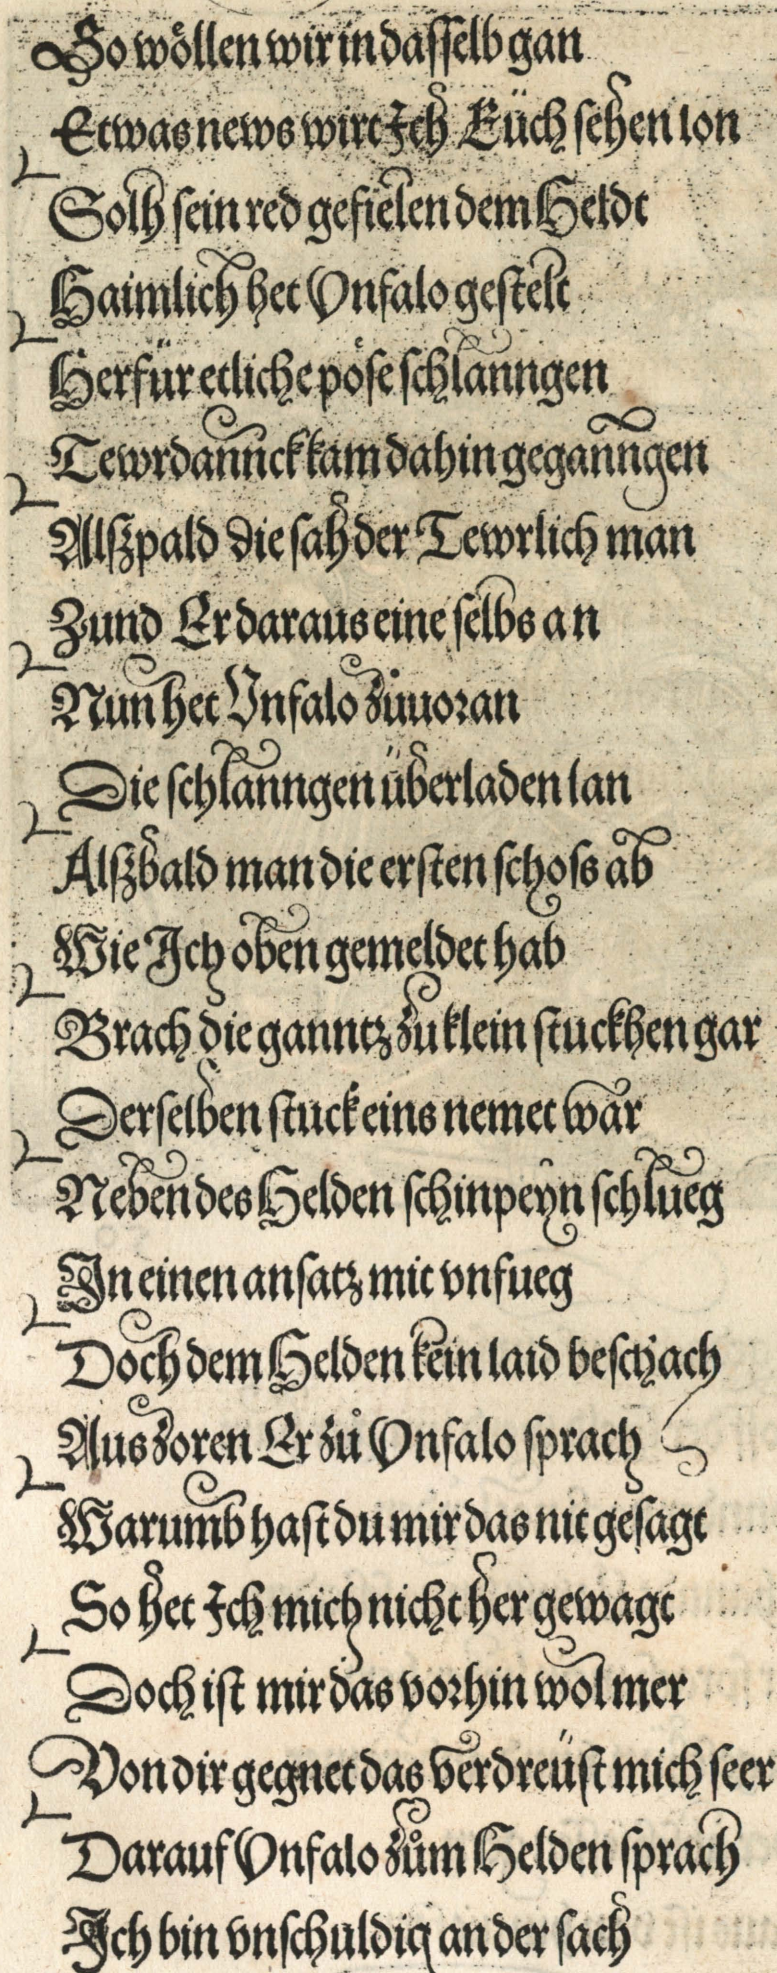 So wöllen wir in dasselb gan
Etwas news wirt Ich Euch sehen lon
Solh sein red gefielen dem Heldt
Haimlich het Vnfalo gestelt
Herfür etliche pöse schlanngen
Tewrdannck kam dahin geganngen
Alßpald die sah der Tewrlich man
Zund Er daraus eine selbs an
Nun het Vnfalo zůuoran
Die schlanngen überladen lan
Alßbald man die ersten schoss ab
Wie Ich oben gemeldet hab
Brach die ganntz zu klein stuckhen gar
Derselben stuck eins nemet war
Neben des Helden schinpeyn schlueg
In einen ansatz mit vnfueg
Doch dem Helden kein laid beschach
Aus zoren Er zů Vnfalo sprach
Warumb hast du mir das nit gesagt
So het Ich mich nicht her gewagt
Doch ist mir das vorhin wol mer
Von dir gegnet das verdreüst mich seer
Darauf Vnfalo zům Helden sprach
Ich bin vnschuldig an der sach